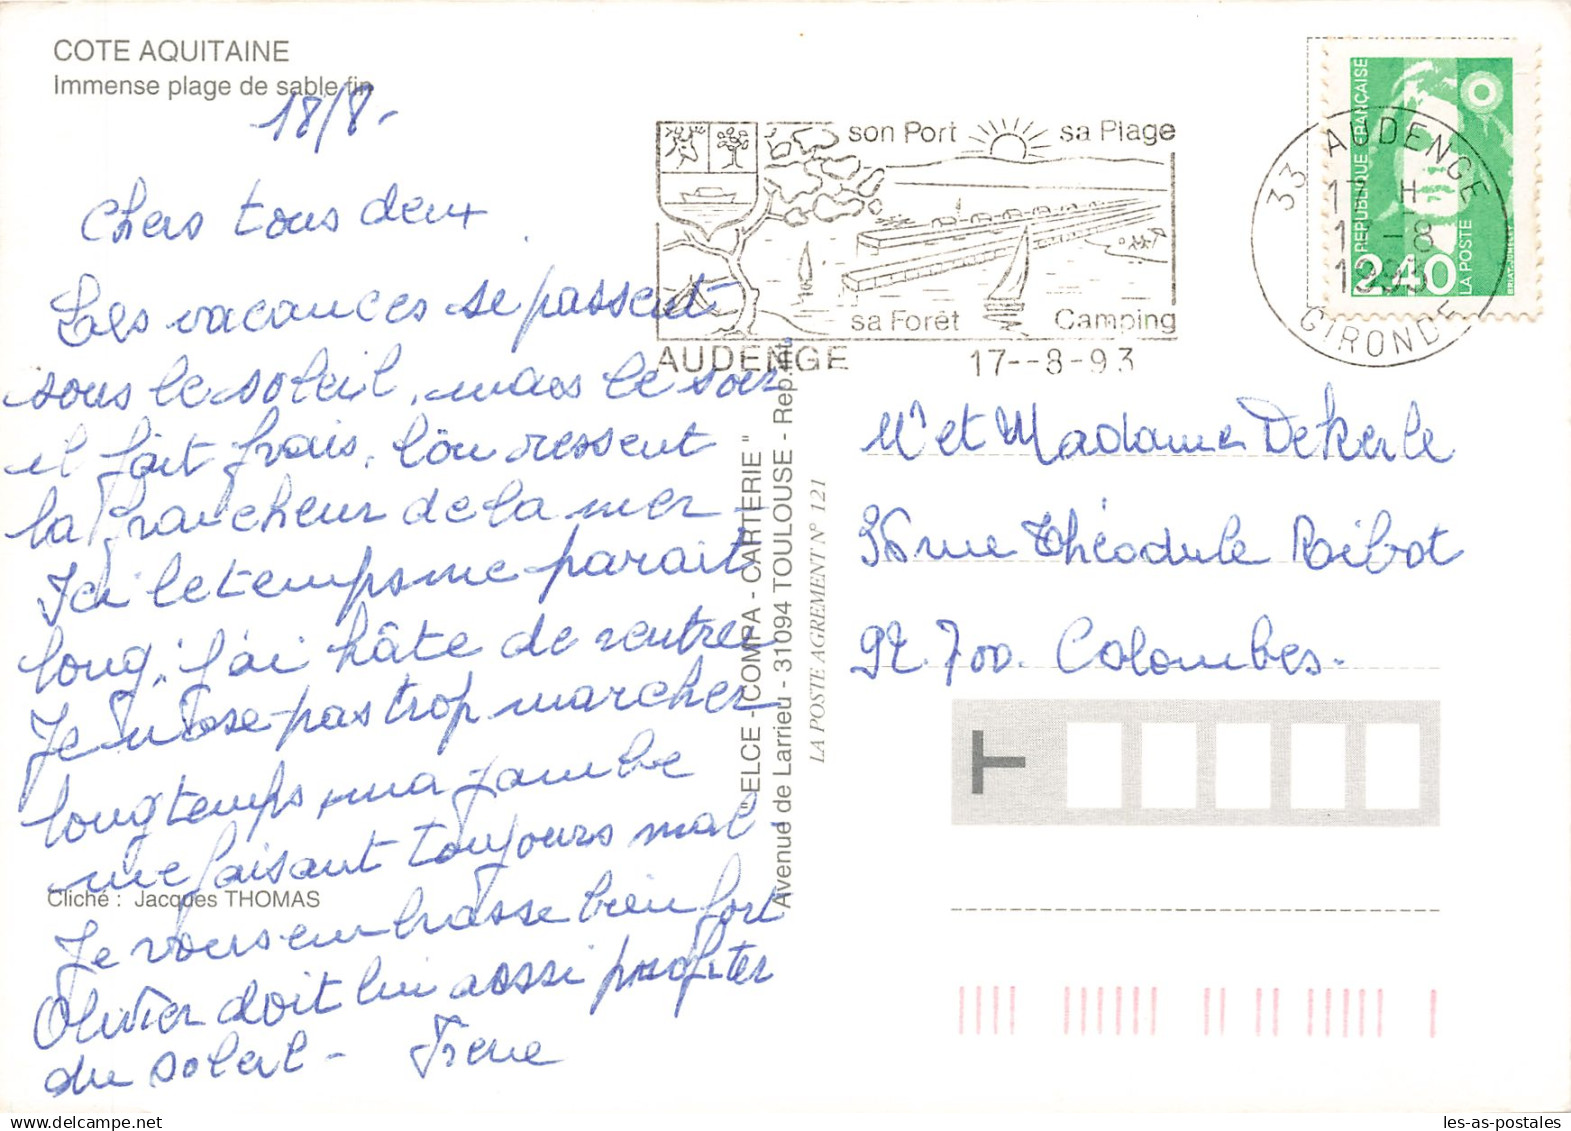 COTE AQUITAINE
Immense plage de sable fin
18/8-
Chers tous deux
Les vacances se passent
sous le soleil, mais le soir
il fait frais, l'on ressent
la fraicheur de la mer -
Ici le temps me parait
long, j'ai hâte de rentrer
Je n'ose pas trop marcher
longtemps, ma jambe
me faisant toujours mal -
Cliché : Jacques THOMAS
Je vous embrasse bien fort
Olivier doit lui aussi profiter
du soleil - Irene
son Port sa Plage
sa Forêt Camping
AUDENGE 17--8-93
33 AUDENGE
17 H
17-8
1993
GIRONDE
REPUBLIQUE FRANÇAISE
2,40
LA POSTE
"ELCE - COMPA - CARTERIE"
Avenue de Larrieu - 31094 TOULOUSE - Rep.
LA POSTE AGREMENT N° 121
Mr et Madame Dekerle
36 rue Théodule Ribot
92.700. Colombes.
T
les-as-postales